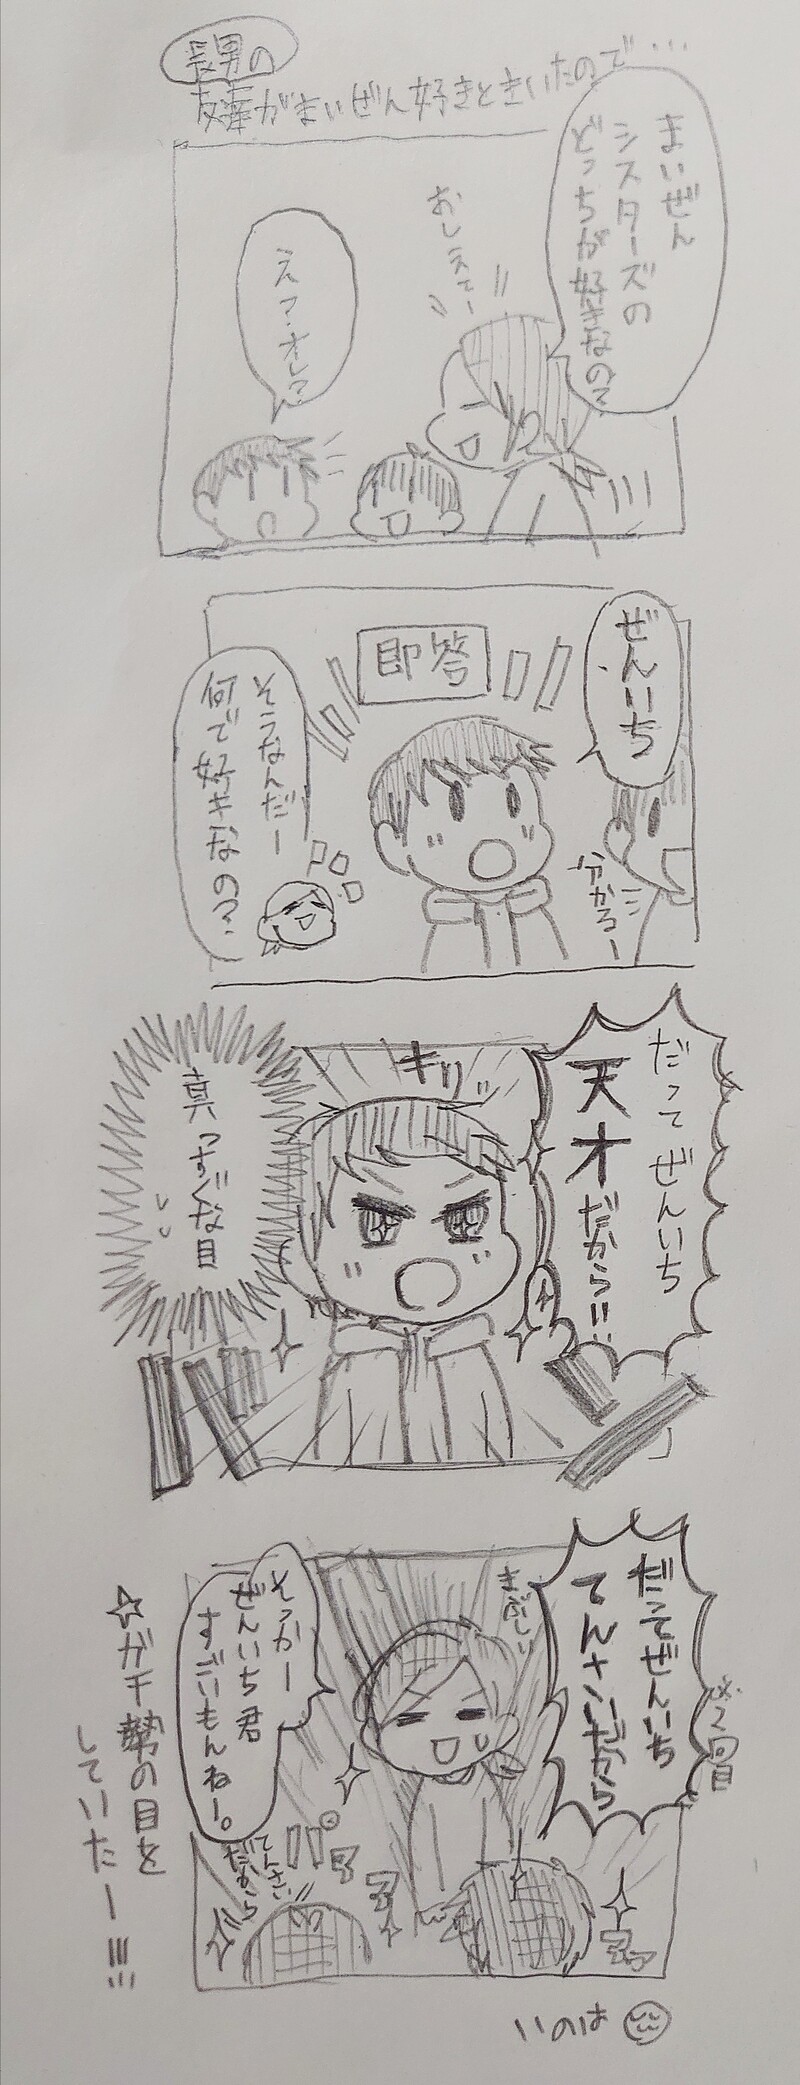 長男の
友達がまいぜん好きときいたので…
まいぜん
シスターズの
どっちが好きなの?
おしえてー
えっ?オレ?
ぜんいち
即答
分かるー
そうなんだー
何で好キなの?
だって ぜんいち
天才だから!!
キリッ
真っすぐな目
だってぜんいち
てんさいだから
※2回目
まぶしい
そっかー
ぜんいち君
すごいもんねー。
てんさい
だから
☆ガチ勢の目を
していたー!!!
いのは